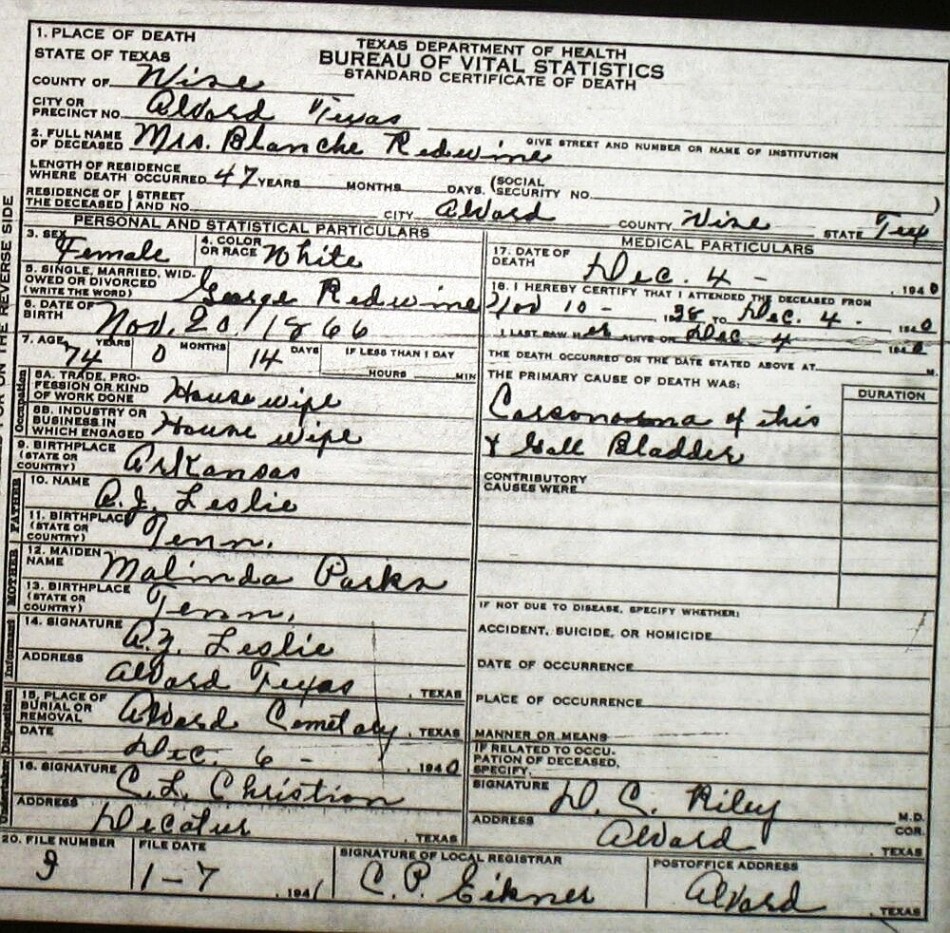 1. PLACE OF DEATH
TEXAS DEPARTMENT OF HEALTH
BUREAU OF VITAL STATISTICS
STANDARD CERTIFICATE OF DEATH
STATE OF TEXAS
COUNTY OF Wise
CITY OR PRECINCT NO. Alvord Texas
GIVE STREET AND NUMBER OR NAME OF INSTITUTION
2. FULL NAME OF DECEASED Mrs. Blanche Redwine
LENGTH OF RESIDENCE WHERE DEATH OCCURRED 47 YEARS MONTHS DAYS. (SOCIAL SECURITY NO. )
RESIDENCE OF THE DECEASED STREET AND NO. CITY Alvord COUNTY Wise STATE Tex
PERSONAL AND STATISTICAL PARTICULARS
3. SEX Female 4. COLOR OR RACE White
5. SINGLE, MARRIED, WIDOWED OR DIVORCED (WRITE THE WORD) George Redwine
6. DATE OF BIRTH Nov. 20 1866
7. AGE 74 YEARS 0 MONTHS 14 DAYS IF LESS THAN 1 DAY HOURS MIN
Occupation
8A. TRADE, PROFESSION OR KIND OF WORK DONE House wife
8B. INDUSTRY OR BUSINESS IN WHICH ENGAGED House wife
9. BIRTHPLACE (STATE OR COUNTRY) Arkansas
FATHER
10. NAME A.J. Leslie
11. BIRTHPLACE (STATE OR COUNTRY) Tenn.
MOTHER
12. MAIDEN NAME Malinda Parks
13. BIRTHPLACE (STATE OR COUNTRY) Tenn.
Informant
14. SIGNATURE Leslie
ADDRESS Alvord Texas , TEXAS
Disposition
15. PLACE OF BURIAL OR REMOVAL Alvord Cemetary , TEXAS
DATE Dec. 6 - , 1940
Undertaker
16. SIGNATURE C. L. Christian
ADDRESS Decatur , TEXAS
MEDICAL PARTICULARS
17. DATE OF DEATH Dec. 4 - , 1940
18. I HEREBY CERTIFY THAT I ATTENDED THE DECEASED FROM
Nov 10 - 1938 TO Dec. 4 - 1940
I LAST SAW H er ALIVE ON Dec 4 1940
THE DEATH OCCURRED ON THE DATE STATED ABOVE AT M.
THE PRIMARY CAUSE OF DEATH WAS: DURATION
Carsonoma of this
& Gall Bladder
CONTRIBUTORY CAUSES WERE
IF NOT DUE TO DISEASE, SPECIFY WHETHER:
ACCIDENT, SUICIDE, OR HOMICIDE
DATE OF OCCURRENCE
PLACE OF OCCURRENCE
MANNER OR MEANS
IF RELATED TO OCCUPATION OF DECEASED, SPECIFY.
SIGNATURE D. C. Riley M.D. COR.
ADDRESS Alvord , TEXAS
20. FILE NUMBER FILE DATE 1-7 , 1941
SIGNATURE OF LOCAL REGISTRAR C. P. Eikner
POSTOFFICE ADDRESS Alvord , TEXAS
ON THE REVERSE SIDE